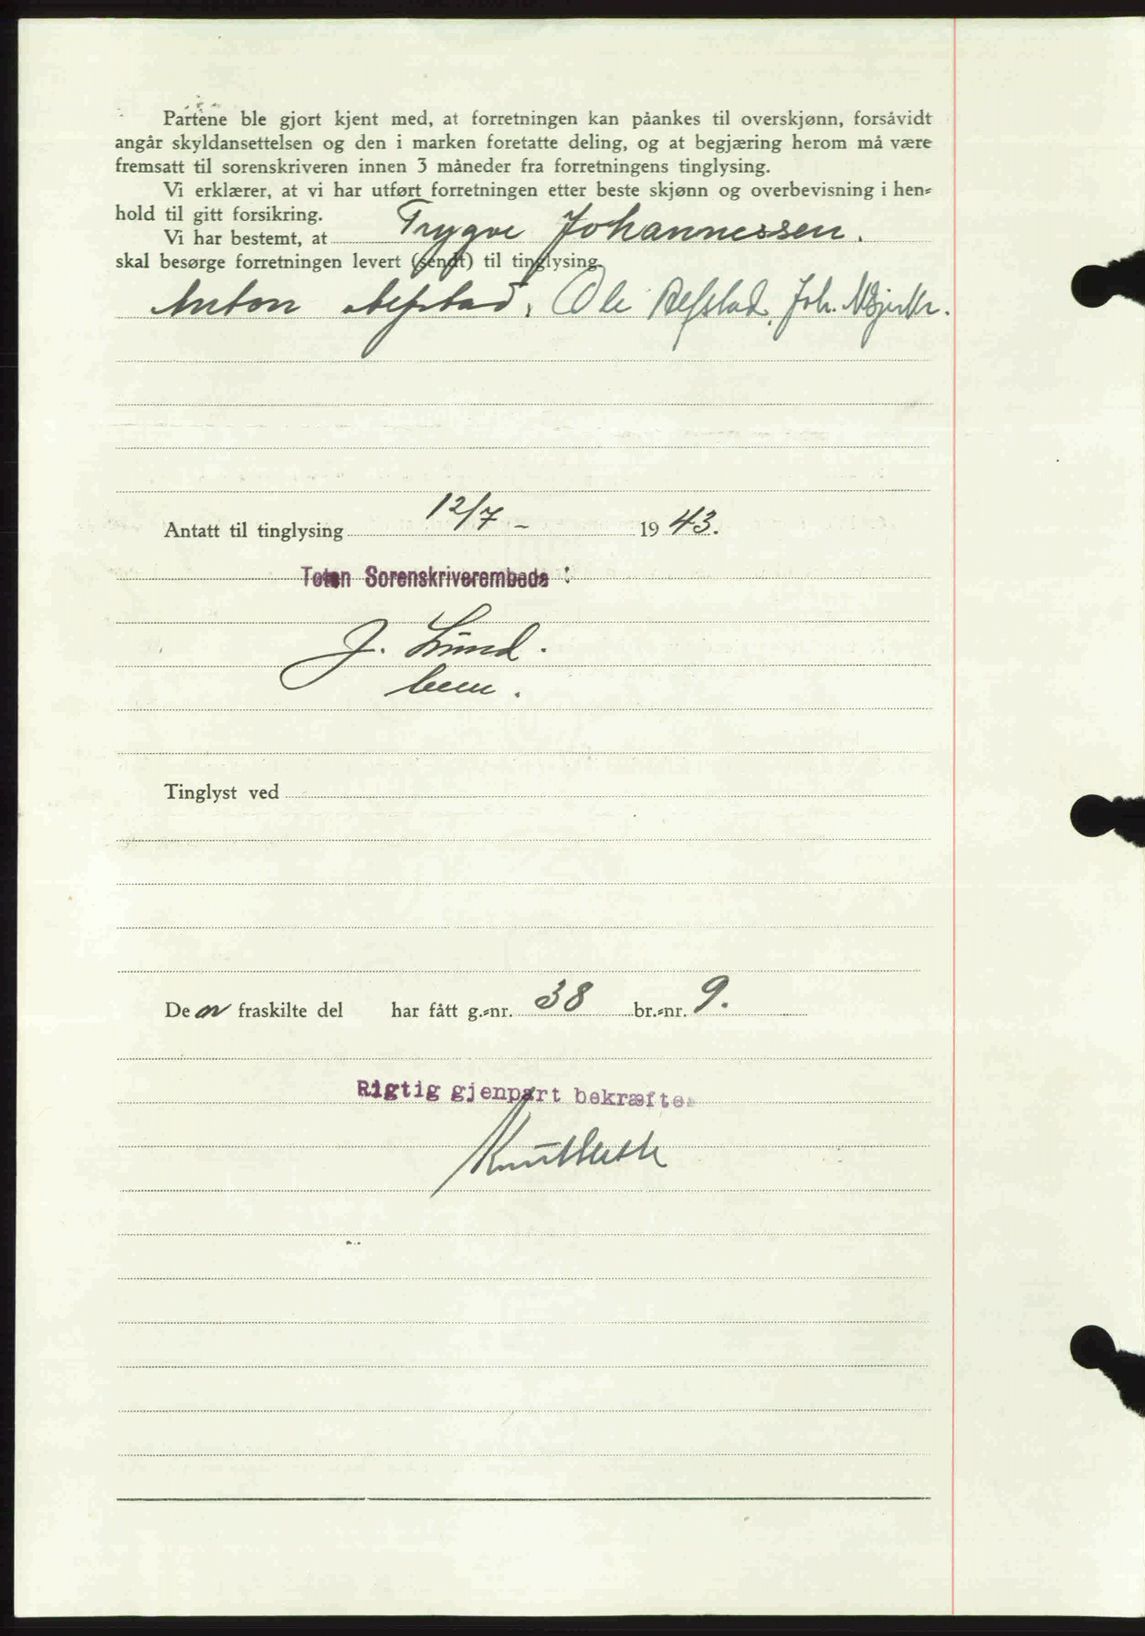 Partene ble gjort kjent med, at forretningen kan påankes til overskjønn, forsåvidt
angår skyldansettelsen og den i marken foretatte deling, og at begjæring herom må være
fremsatt til sorenskriveren innen 3 måneder fra forretningens tinglysing.
Vi erklærer, at vi har utført forretningen etter beste skjønn og overbevisning i hen-
hold til gitt forsikring.
Vi har bestemt, at Trygve Johannessen.
skal besørge forretningen levert (sendt) til tinglysing.
Anton Refstad, Ole Refstad, Joh.
Antatt til tinglysing 12/7 - 1943.
Toten Sorenskriverembede :
J. Lund.
Tinglyst ved
De n fraskilte del har fått g.-nr. 38 br.-nr. 9.
Rigtig gjenpart bekræftes